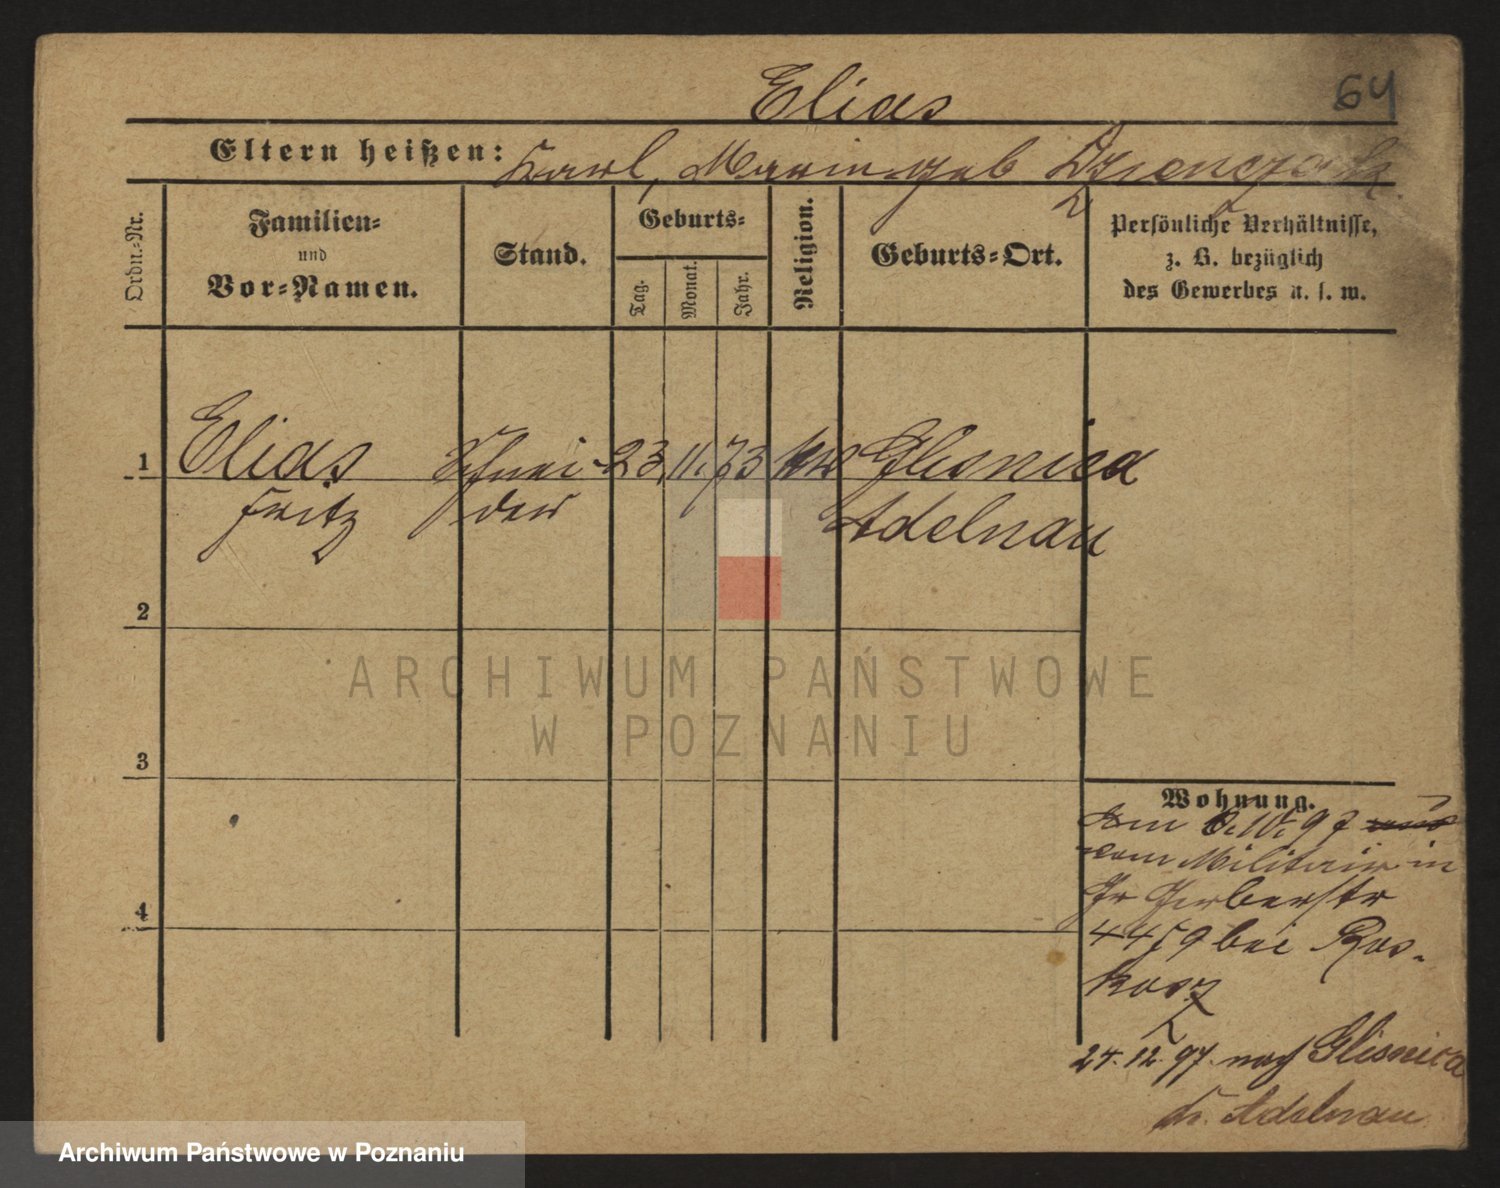 Elias
64
Eltern heißen: Karl, Maria geb
Ordn.-Nr.
Familien-
und
Vor-Namen.
Stand.
Geburts-
Tag.
Monat.
Jahr.
Religion.
Geburts-Ort.
Persönliche Verhältnisse,
z. B. bezüglich
des Gewerbes u. s. w.
1 Elias Schnei- 23. 11. 73 Glisnica
Fritz der Adelnau
2
3
4
Wohnung.
Am 6. 10. 97
vom Militair in
Gerberstr
bei Ros-
kosz
24. 12. 97. nach Glisnica
Kr. Adelnau
ARCHIWUM PAŃSTWOWE
W POZNANIU
Archiwum Państwowe w Poznaniu